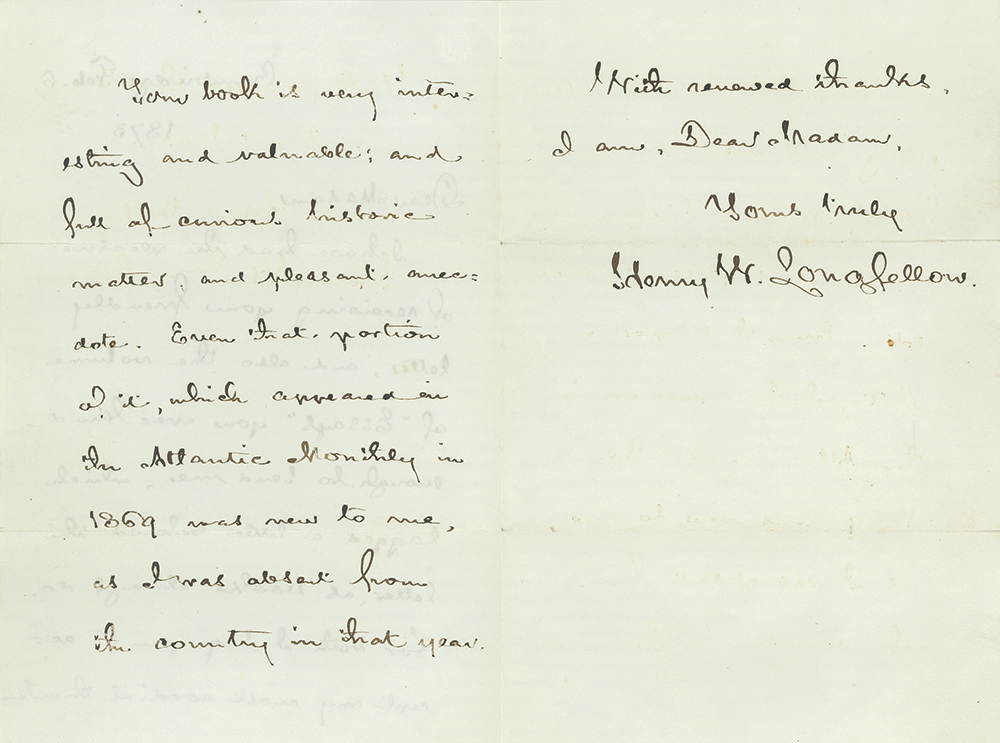 Your book is very inter=
esting and valuable; and
full of curious historic
matter, and pleasant anec=
dote. Even that portion
of it, which appeared in
the Atlantic Monthly in
1869 was new to me,
as I was absent from
the country in that year.
With renewed thanks,
I am, Dear Madam,
Yours truly
Henry W. Longfellow.